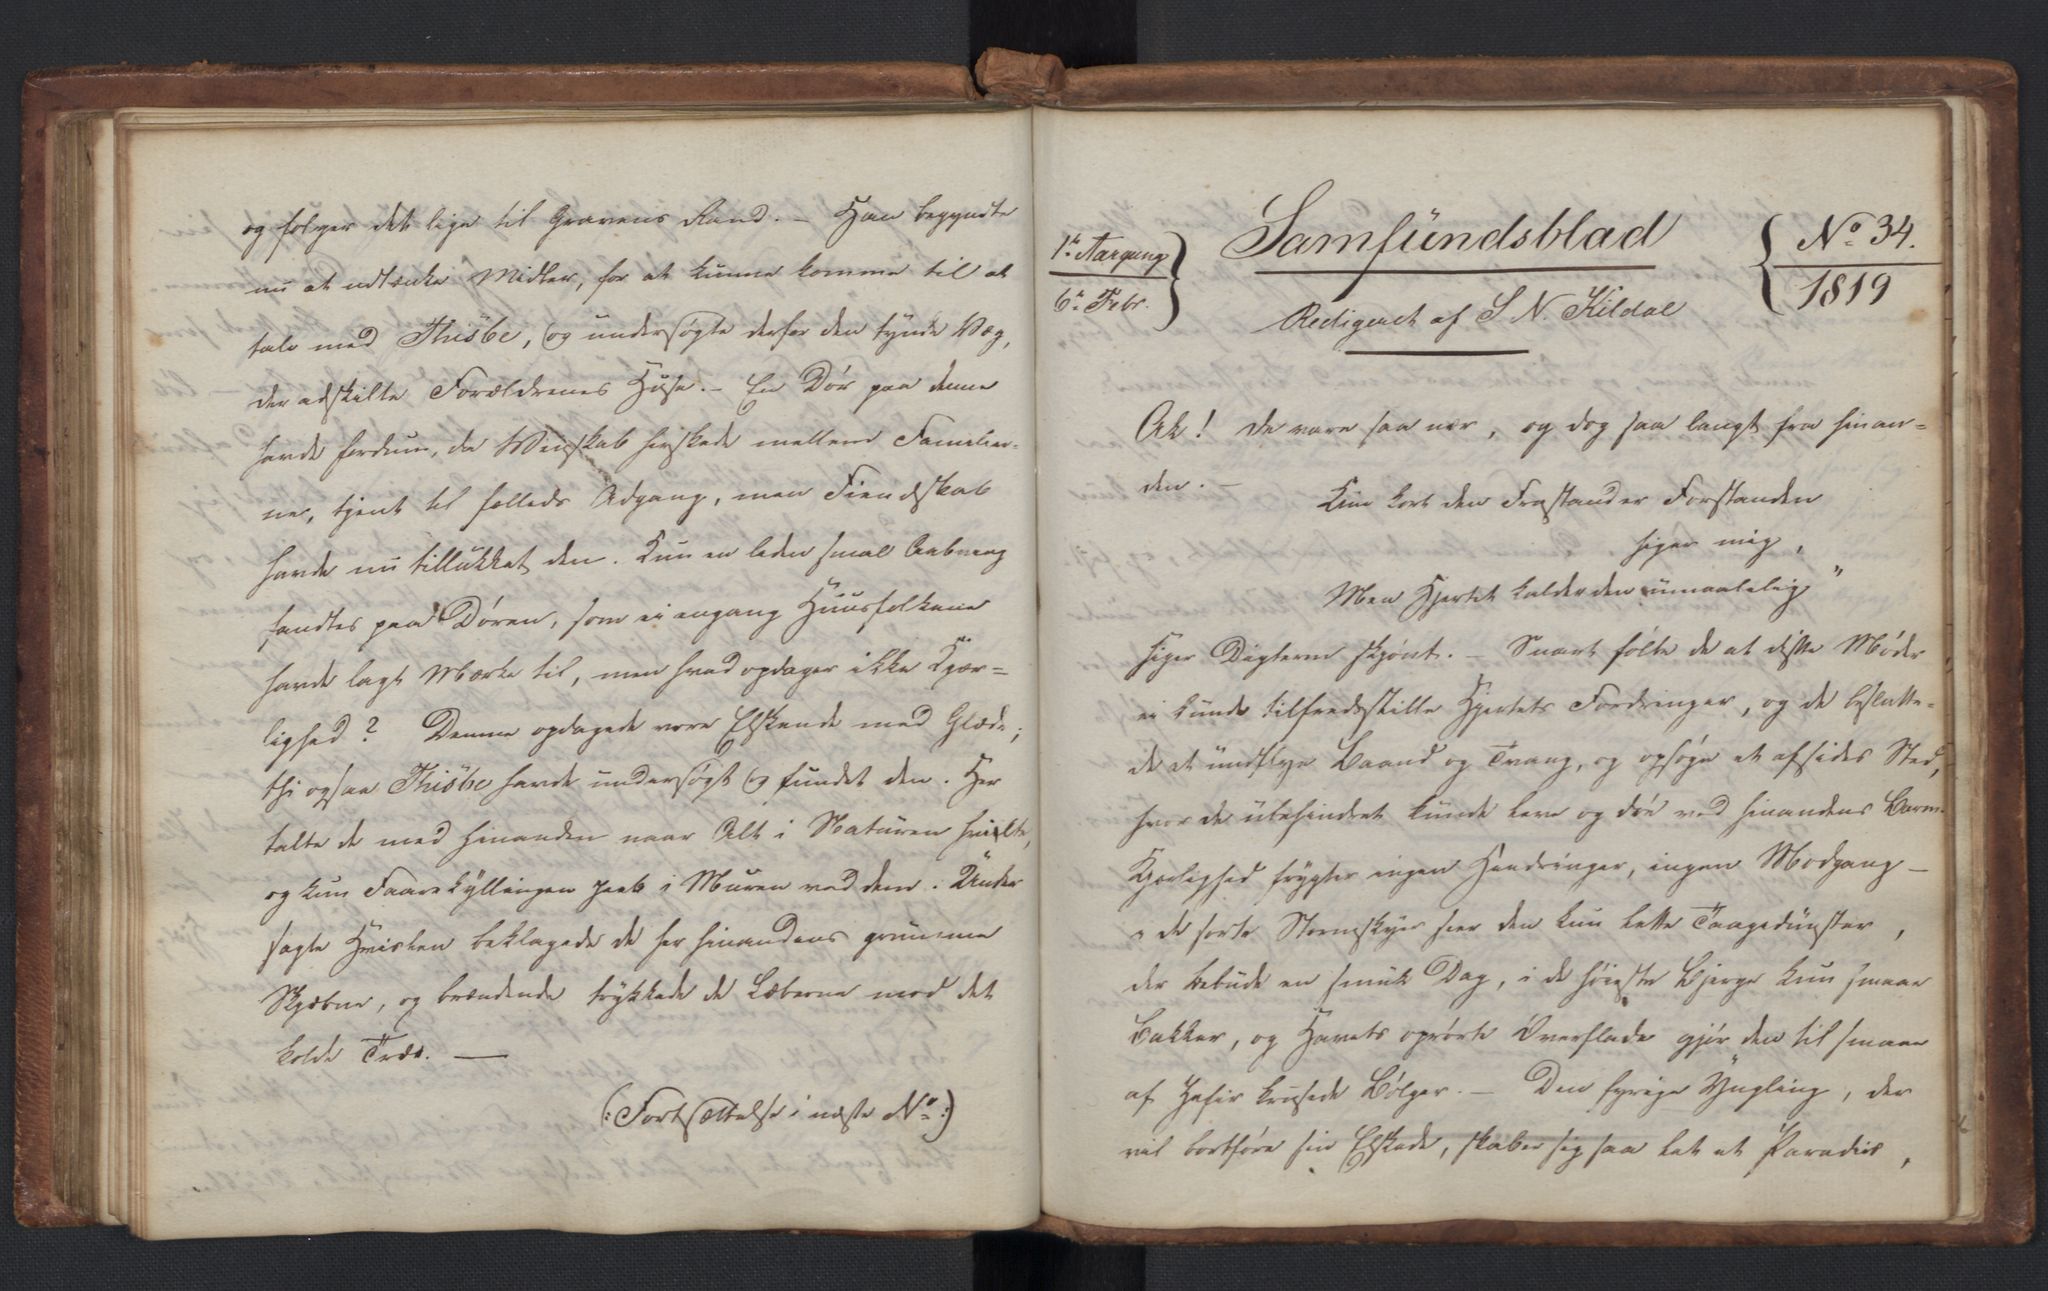 og følger det lige til Gravens Rand. – Han begyndte
nu at udtænke Midler, for at kunne komme til at
tale med Thisbe, og undersøgte derfor den tynde Væg,
der adskilte Forældrenes Huse. – En Dør paa denne
havde fordum, da Venskab herskede mellem Familier-
ne, tjent til fælleds Adgang, men Fiendskab
havde nu tillukket den. Kun en liden smal Aabning
fandtes paa Døren, som ei engang Huusfolkene
havde lagt Mærke til, men hvad opdager ikke Kjær-
lighed? Denne opdagede vore Elskende med Glæde;
thi ogsaa Thisbe havde undersøgt og fundet den. Her
talte de med hinanden naar Alt i Naturen hvilte,
og kun Faarekyllingen peeb i Muren ved dem. Under
sagte Hvisken beklagede de her hinandens grumme
Skjæbne, og brændende trykkede de Læberne mod det
kolde Træe. —
(: Fortsættelse i næste No :)
1te Aargang
6te Febr.
Samfundsblad
No 34.
1819
Redigeret af S N. Kildal
Ak! de vare saa nær, og dog saa langt fra hinan-
den. –
Kun kort den Frastand er Forstanden
siger mig,
Men Hjertet kalder den umaalelig"
siger Digteren skjønt. – Snart følte de at disse Møder
ei kunde tilfredsstille Hjertets Fordringer, og de beslutte-
de at undflye Baand og Tvang, og opsøge et afsides Sted,
hvor de ubehindret kunde leve og døe ved hinandens Barm.
Kjærlighed frygter ingen Hindringer, ingen Modgang –
i de sorte Stormskyer seer den kun lette Taagedunster,
der bebude en smuk Dag, i de høieste Bjerge kun smaae
Bakker, og Havets oprørte Overflade gjør den til smaae
af Zefir krusede Bølger. – Den fyrige Yngling, der
vil bortføre sin Elskede, skaber sig saa let et Paradiis,